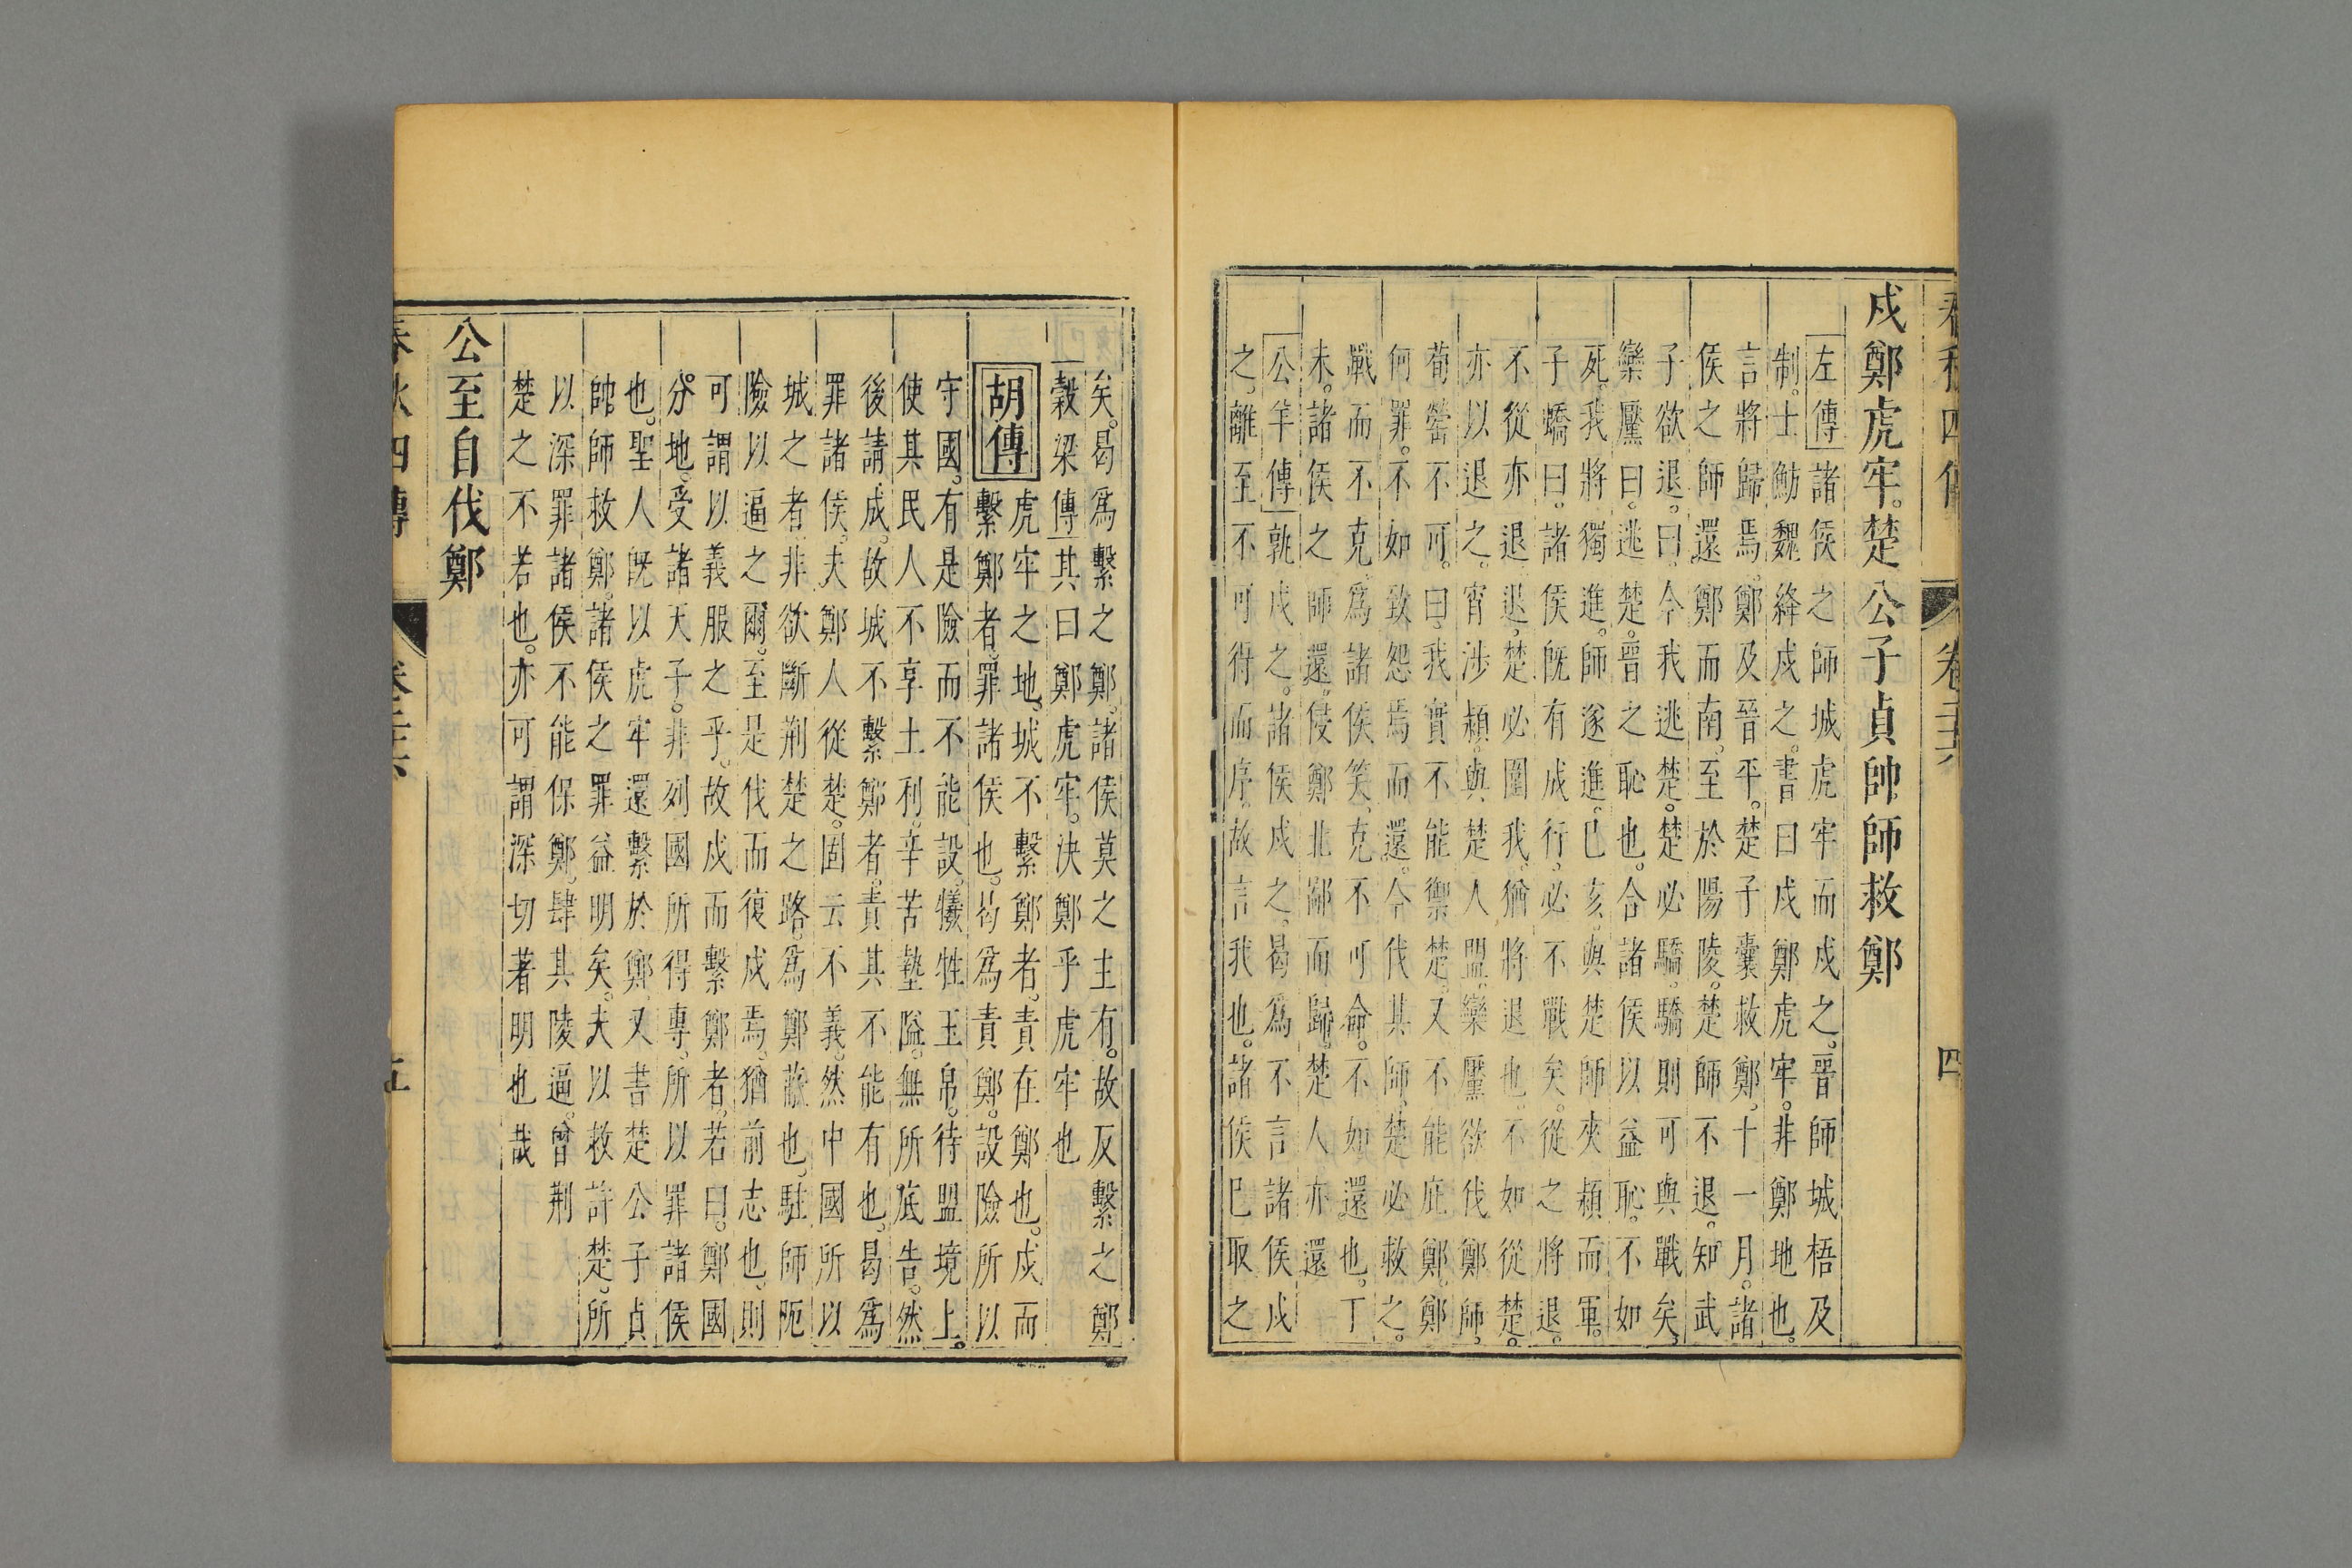 春秋四傳 卷二十六 四
戍鄭虎牢。楚公子貞帥師救鄭
左傳諸侯之師城虎牢而戍之。晉師城梧及
制。士魴魏絳戍之。書曰戍鄭虎牢。非鄭地也。
言將歸焉。鄭及晉平。楚子囊救鄭。十一月。諸
侯之師還鄭而南。至於陽陵。楚師不退。知武
子欲退。曰。今我逃楚。楚必驕。驕則可與戰矣。
欒黶曰。逃楚。晉之恥也。合諸侯以益恥。不如
死。我將獨進。師遂進。己亥。與楚師夾潁而軍。
子蟜曰。諸侯既有成行。必不戰矣。從之將退。
不從亦退。退。楚必圍我。猶將退也。不如從楚。
亦以退之。宵涉潁。與楚人盟。欒黶欲伐鄭師。
荀罃不可。曰。我實不能禦楚。又不能庇鄭。鄭
何罪。不如致怨焉而還。今伐其師。楚必救之。
戰而不克。爲諸侯笑。克不可命。不如還也。丁
未。諸侯之師還。侵鄭北鄙而歸。楚人亦還
公羊傳孰戍之。諸侯戍之。曷爲不言諸侯戍
之。離至不可得而序。故言我也。諸侯已取之
矣。曷爲繫之鄭。諸侯莫之主有。故反繫之鄭
穀梁傳其曰鄭虎牢。決鄭乎虎牢也
胡傳虎牢之地。城不繫鄭者。責在鄭也。戍而
繫鄭者。罪諸侯也。曷爲責鄭。設險所以
守國。有是險而不能設。犧牲玉帛。待盟境上。
使其民人不享土利。辛苦墊隘。無所底告。然
後請成。故城不繫鄭者。責其不能有也。曷爲
罪諸侯。夫鄭人從楚。固云不義。然中國所以
城之者。非欲斷荆楚之路。爲鄭蔽也。駐師阨
險以逼之爾。至是伐而復戍焉。猶前志也。則
可謂以義服之乎。故戍而繫鄭者。若曰。鄭國
分地。受諸天子。非列國所得專。所以罪諸侯
也。聖人既以虎牢還繫於鄭。又書楚公子貞
帥師救鄭。諸侯之罪益明矣。夫以救許楚。所
以深罪諸侯不能保鄭。肆其陵逼。曾荆
楚之不若也。亦可謂深切著明也哉
公至自伐鄭
春秋四傳 卷二十六 五